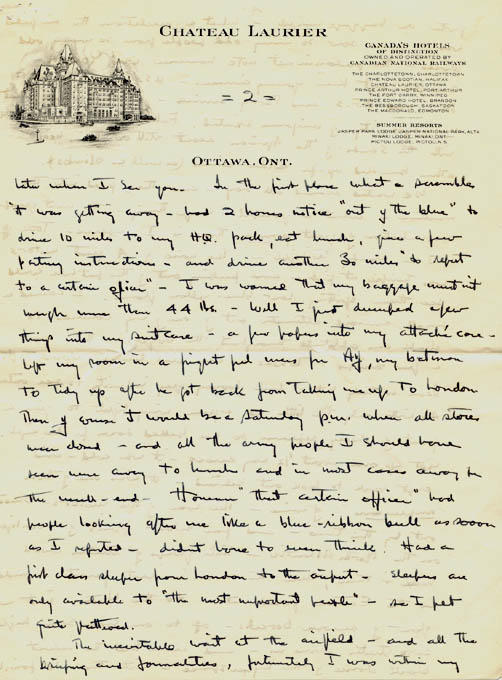 CHATEAU LAURIER
CANADA'S HOTELS
OF DISTINCTION
OWNED AND OPERATED BY
CANADIAN NATIONAL RAILWAYS
THE CHARLOTTETOWN, CHARLOTTETOWN
THE NOVA SCOTIAN, HALIFAX
CHATEAU LAURIER, OTTAWA
PRINCE ARTHUR HOTEL, PORT ARTHUR
THE FORT GARRY, WINNIPEG
PRINCE EDWARD HOTEL, BRANDON
THE BESSBOROUGH, SASKATOON
THE MACDONALD, EDMONTON
SUMMER RESORTS
JASPER PARK LODGE, JASPER NATIONAL PARK, ALTA
MINAKI LODGE, MINAKI, ONT.
PICTOU LODGE, PICTOU, N.S.
= 2 =
OTTAWA, ONT.
later when I see you. In the first place what a scramble
it was getting away - had 2 hours notice "out of the blue" to
drive 10 miles to my HQ. pack, eat lunch, give a few
parting instructions - and drive another 30 miles "to report
to a certain officer" - I was warned that my baggage mustn't
weigh more than 44 lbs. - Well I just dumped a few
things into my suit case - a few papers into my attaché case -
left my room in a frightful mess for my batman
to tidy up after he got back from taking me up to London
Then of course it would be a Saturday p.m. when all stores
were closed - and all the army people I should have
seen were away to lunch and in most cases away for
the week-end - However "that certain officer" had
people looking after me like a blue-ribbon bull as soon
as I reported - didn't have to even think. Had a
first class sleeper from London to the airport - sleepers are
only available to "the most important people" - so I felt
quite flattered.
The inevitable wait at the airfield - and all the
briefing and formalities, fortunately I was within my